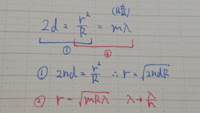 2d = r²/R = mλ
①
②
① 2nd = r²/R ∴ r = √2ndR
② r = √mRλ λ→λ/n